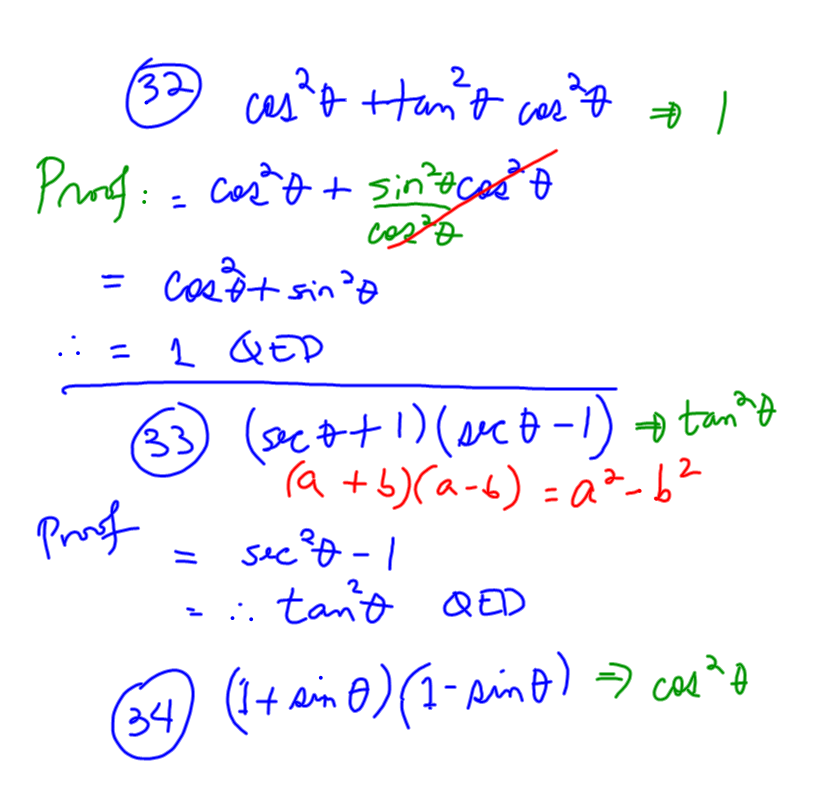 32 cos²θ + tan²θ cos²θ ⇒ 1
Proof: = cos²θ + sin²θ/cos²θ cos²θ
= cos²θ + sin²θ
∴ = 1 QED
33 (sec θ + 1)(sec θ - 1) ⇒ tan²θ
(a + b)(a - b) = a² - b²
Proof = sec²θ - 1
= ∴ tan²θ QED
34 (1 + sin θ)(1 - sin θ) ⇒ cos²θ